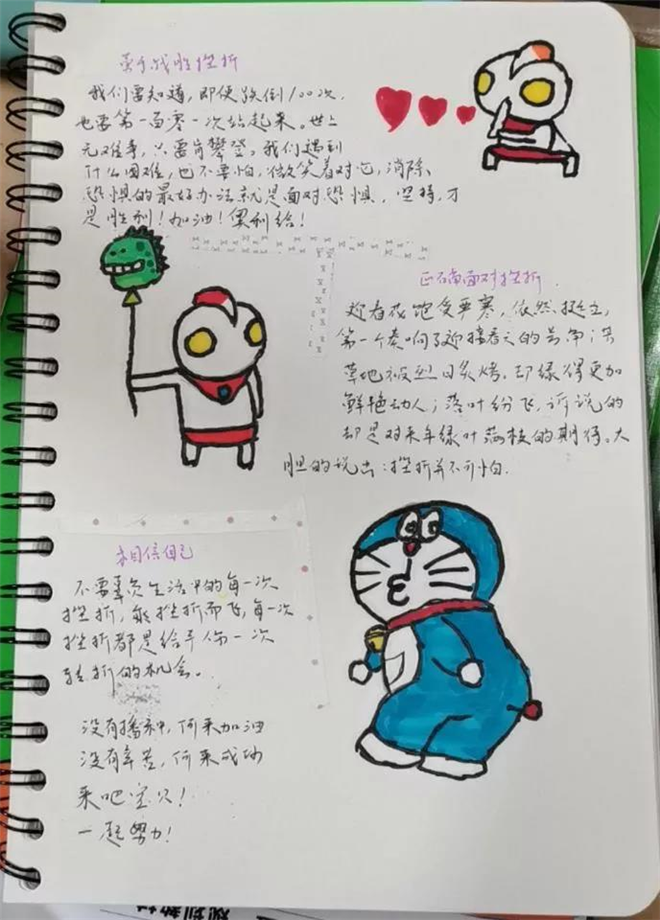 勇于战胜挫折
我们要知道,即使跌倒100次,
也要第一百零一次站起来。世上
无难事,只要肯攀登。我们遇到
什么困难,也不要怕,微笑着对它,消除
恐惧的最好办法就是面对恐惧,坚持,才
是胜利!加油!奥利给!
正确面对挫折
迎春花饱受严寒,依然挺立,
第一个奏响了迎接春天的号角;
草地被烈日炙烤,却绿得更加
鲜艳动人;落叶纷飞,诉说的
却是对来年绿叶满枝的期待。大
胆的说出:挫折并不可怕.
相信自己
不要辜负生活中的每一次
挫折,能挫折而飞,每一次
挫折都是给予你一次
转折的机会。
没有播种,何来加油
没有辛苦,何来成功
来吧宝贝!
一起努力!